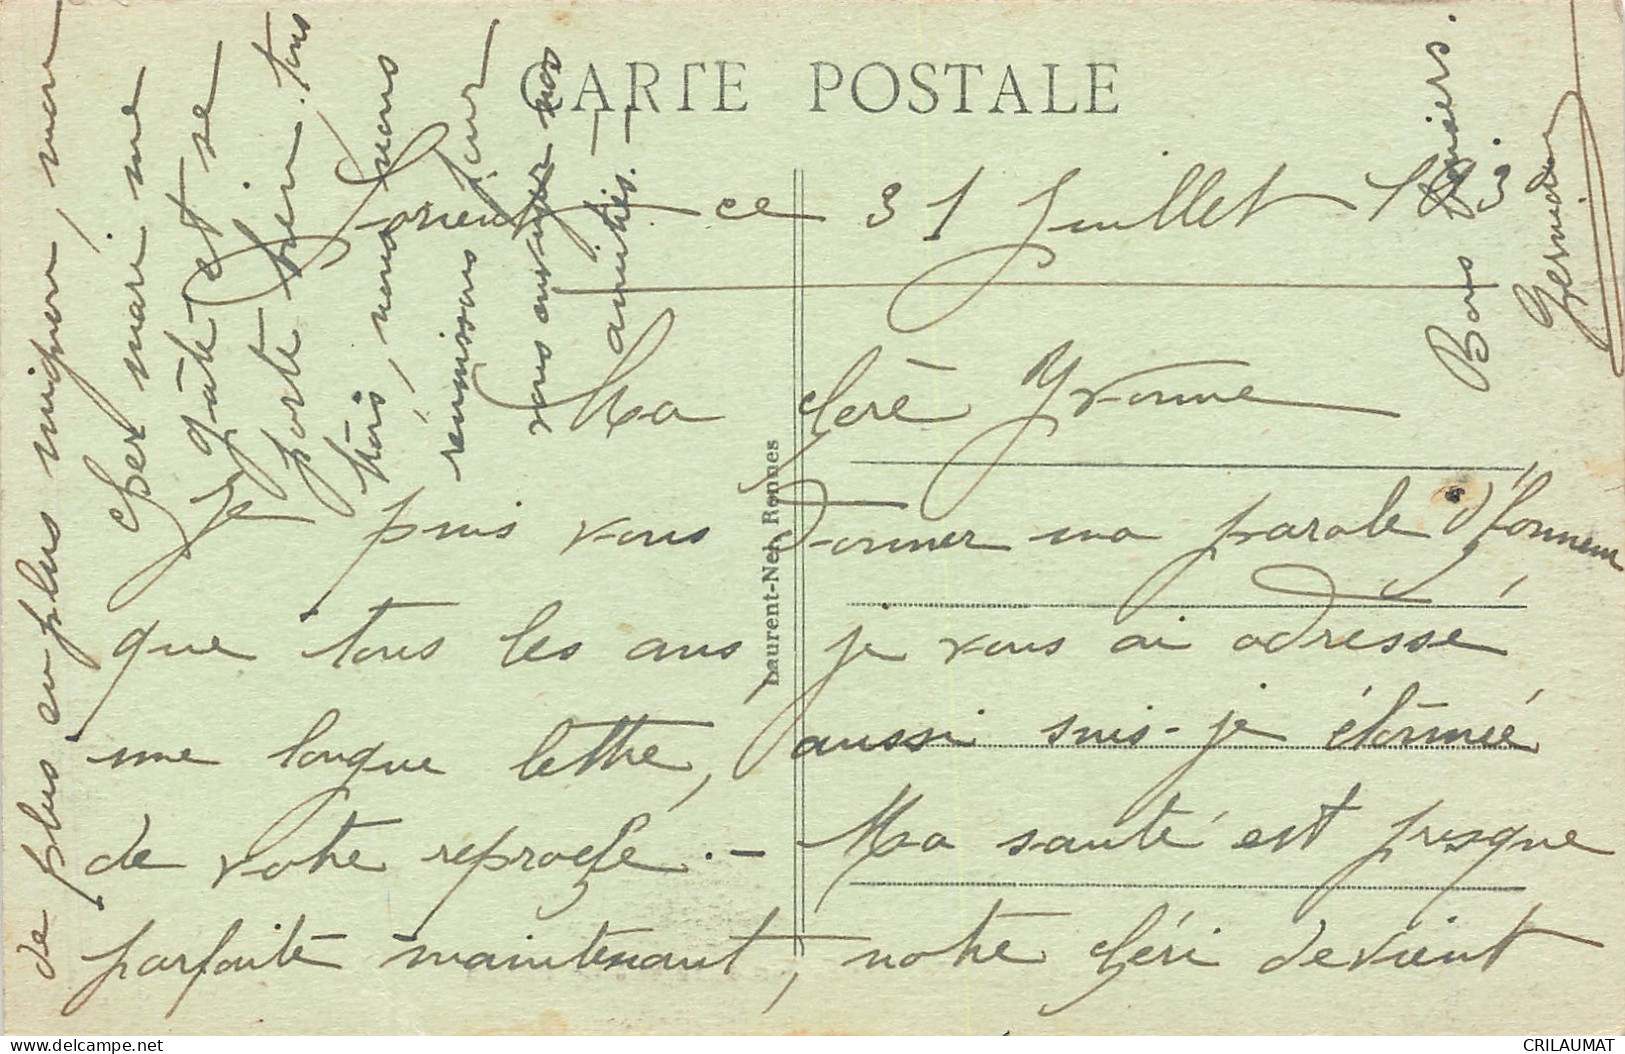 CARTE POSTALE
Lorient, ce 31 Juillet 193
Ma chère Yvonne
Je puis vous donner ma parole d'honneur
que tous les ans, je vous ai adressé
une longue lettre, aussi suis-je étonnée
de votre reproche. - Ma santé est presque
parfaite maintenant, notre chéri devient
de plus en plus mignon, mon
cher mari me
gâte et se
porte bien. Tous
trois, nous nous
réunissons pour
vous envoyer nos
amitiés. -
Bons baisers.
Germaine
Laurent-Nel, Rennes
CRILAUMAT